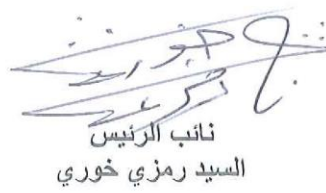 نائب الرئيس
السيد رمزي خوري